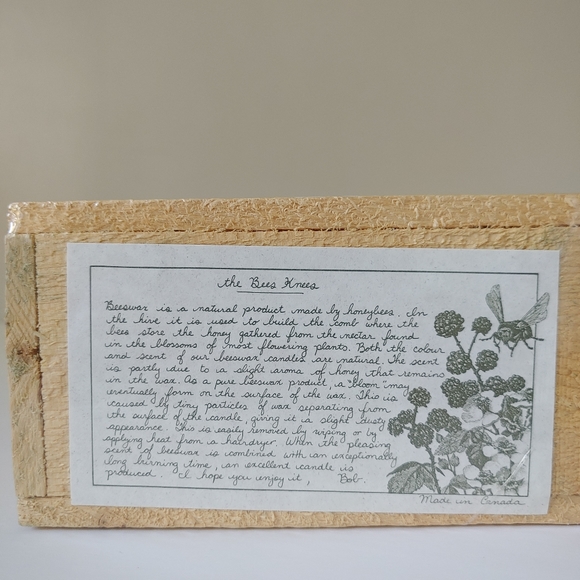 the Bees Knees
Beeswax is a natural product made by honeybees. In
the hive it is used to build the comb where the
bees store the honey gathered from the nectar found
in the blossoms of most flowering plants. Both the colour
and scent of our beeswax candles are natural. The scent
is partly due to a slight aroma of honey that remains
in the wax. As a pure beeswax product, a "bloom" may
eventually form on the surface of the wax. This is
caused by tiny particles of wax separating from
the surface of the candle, giving it a slight dusty
appearance. This is easily removed by wiping or by
applying heat from a hairdryer. When the pleasing
scent of beeswax is combined with an exceptionally
long burning time, an excellent candle is
produced. I hope you enjoy it, Bob.
Made in Canada